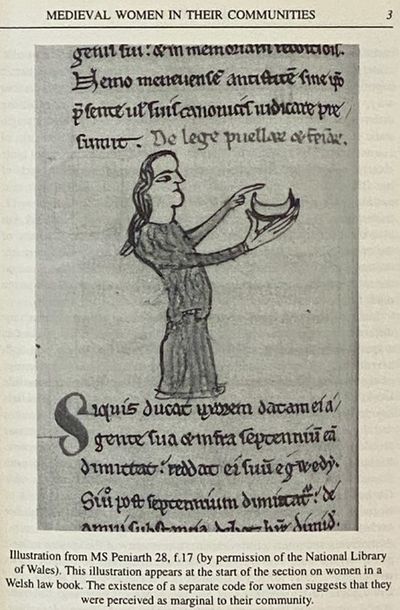 MEDIEVAL WOMEN IN THEIR COMMUNITIES 3
sui: & in memoriam
Nemo meneuensē antistitē sine ip̄o
p̄sente ul̄ suis canonicis iudicare pre/
sumit. De lege puellar &
Siquis ducat uxorem datam ei a/
gente sua & infra septenniū eā
dimittat: reddat ei suū egwedy.
post septennium dimittat : de
omni substantia debet dimid.
Illustration from MS Peniarth 28, f.17 (by permission of the National Library
of Wales). This illustration appears at the start of the section on women in a
Welsh law book. The existence of a separate code for women suggests that they
were perceived as marginal to their community.